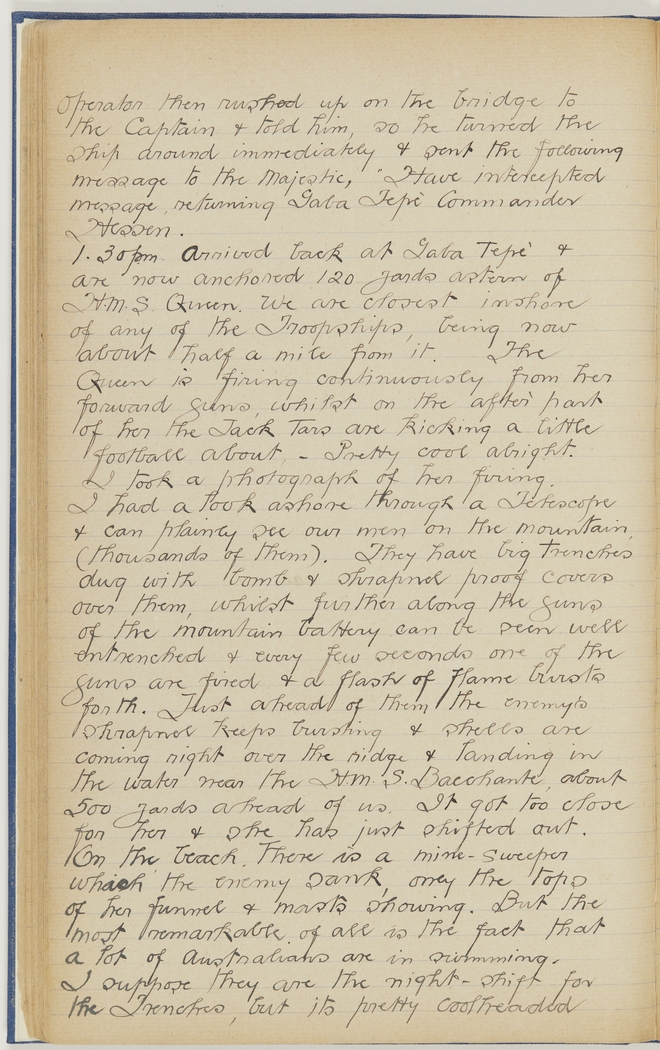 Operator then rushed up on the bridge to
the Captain & told him, so he turned the
ship around immediately & sent the following
message to the Majestic, "Have intercepted
message, returning Gaba Tepe' Commander
Hessen.
1.30pm. Arrived back at Gaba Tepe' &
are now anchored 120 yards astern of
H.M.S. Queen. We are closest inshore
of any of the Troopships, being now
about half a mile from it. The
Queen is firing continuously from her
forward guns, whilst on the after part
of her the Jack Tars are kicking a little
football about, - Pretty cool alright.
I took a photograph of her firing.
I had a look ashore through a Telescope
& can plainly see our men on the mountain,
(thousands of them). They have big trenches
dug with bomb & shrapnel proof covers
over them, whilst further along the guns
of the mountain battery can be seen well
entrenched & every few seconds one of the
guns are fired & a flash of flame bursts
forth. Just ahead of them the enemy's
shrapnel keeps bursting & shells are
coming right over the ridge & landing in
the water near the H.M.S. Bacchante, about
500 yards ahead of us. It got too close
for her & she has just shifted out.
On the beach. There is a mine-sweeper
which the enemy sank, only the tops
of her funnel & masts showing. But the
most remarkable of all is the fact that
a lot of Australians are in swimming.
I suppose they are the night-shift for
the Trenches, but its pretty coolheaded